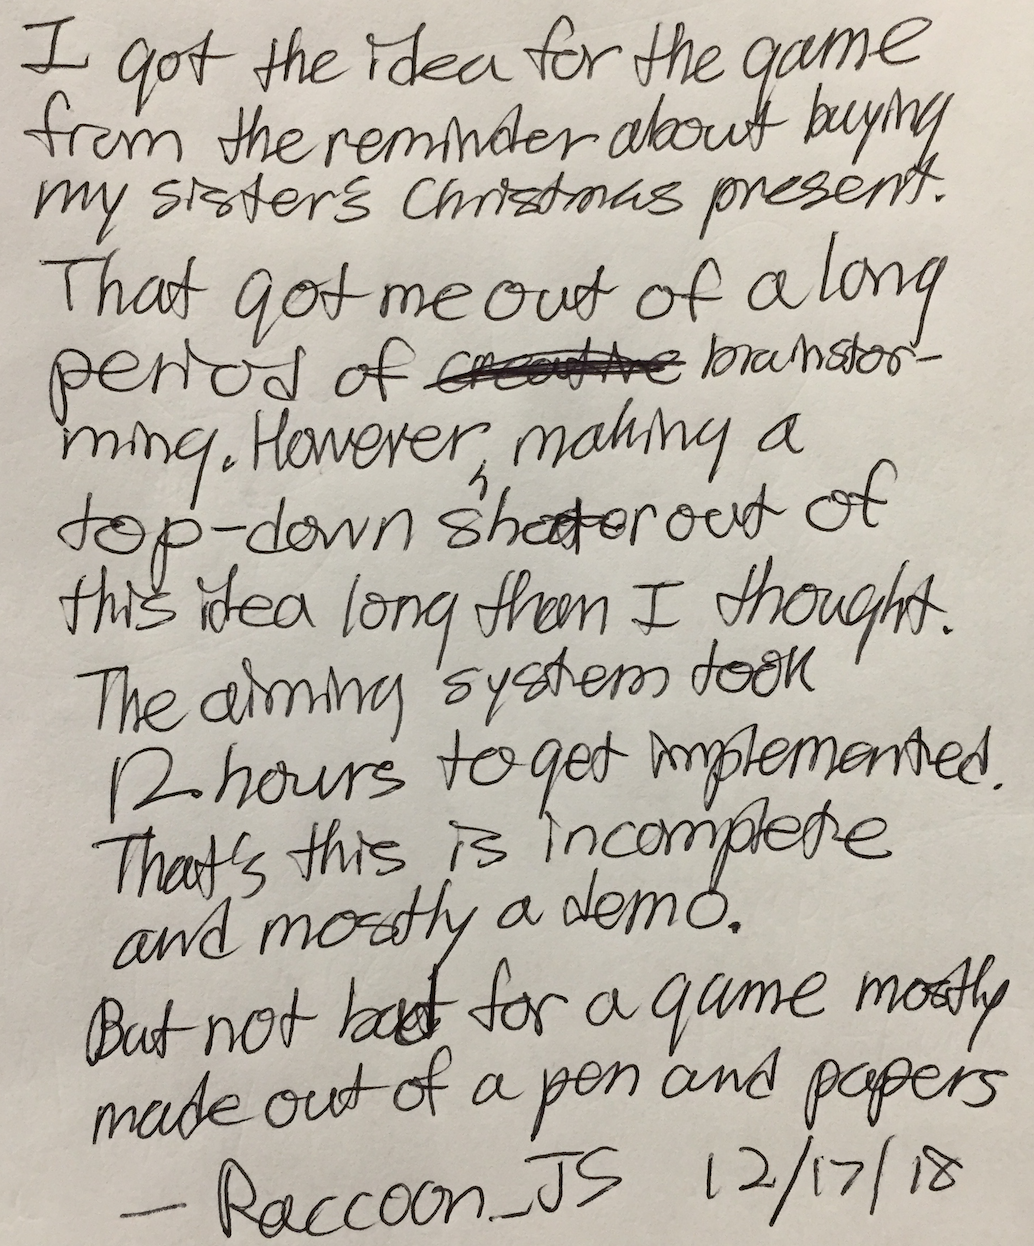 I got the idea for the game
from the reminder about buying
my sister's Christmas present.
That got me out of a long
period of creative brainstor-
ming. However, making a
top-down shooter out of
this idea long than I thought.
The aiming system took
12 hours to get implemented.
That's this is incomplete
and mostly a demo.
But not bad for a game mostly
made out of a pen and papers
— Raccoon_JS 12/17/18